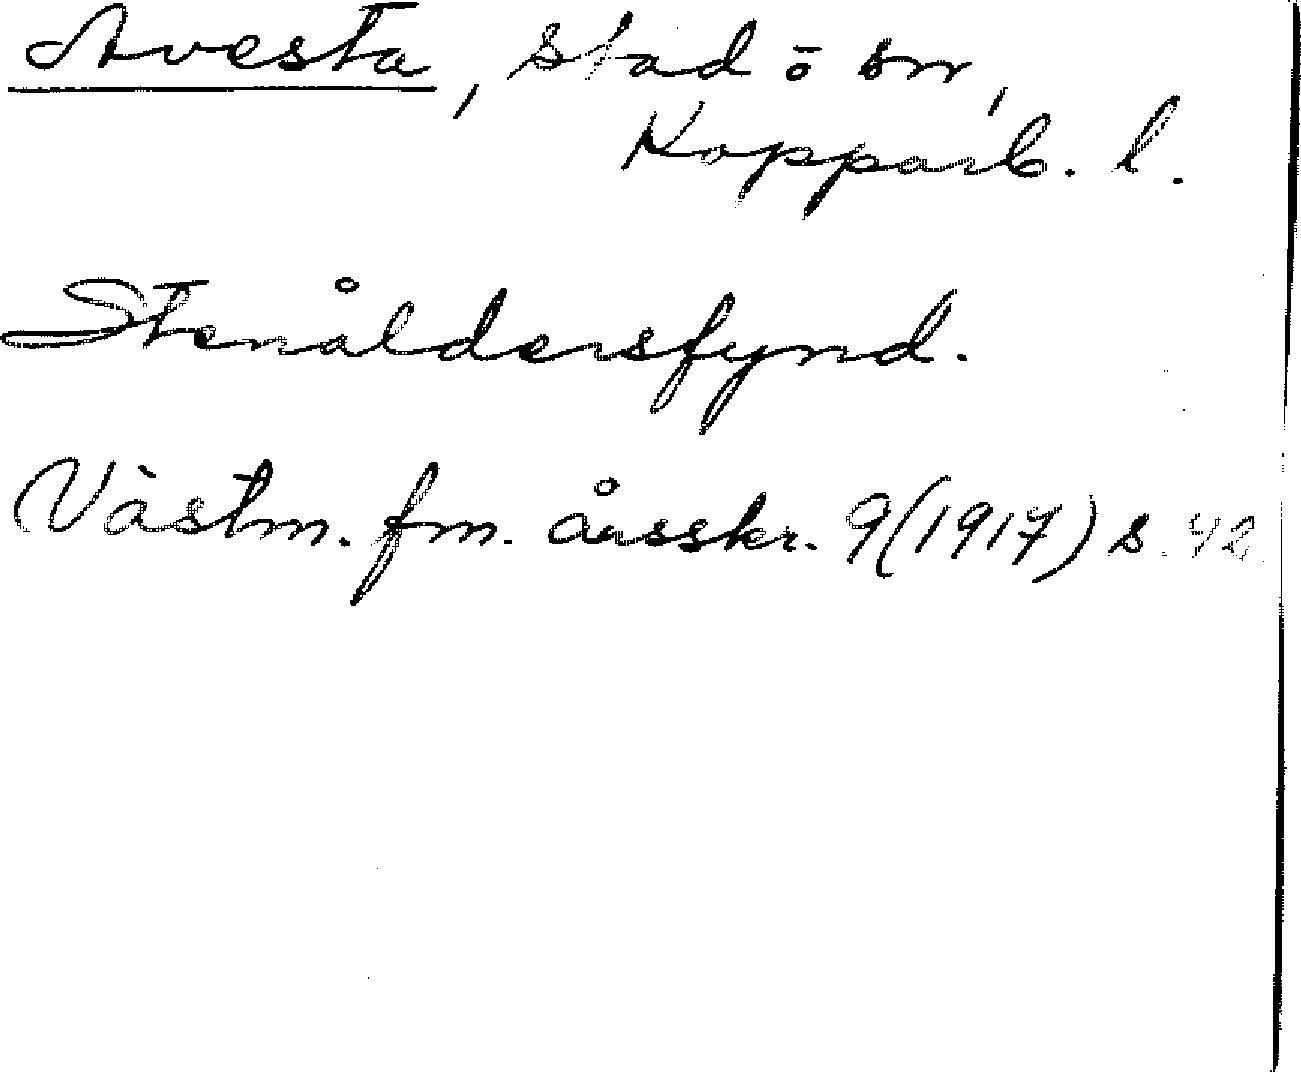 Avesta, stad o sn,
Kopparb. l.
Stenåldersfynd.
Västm. fm. årsskr. 9(1917) s. 42